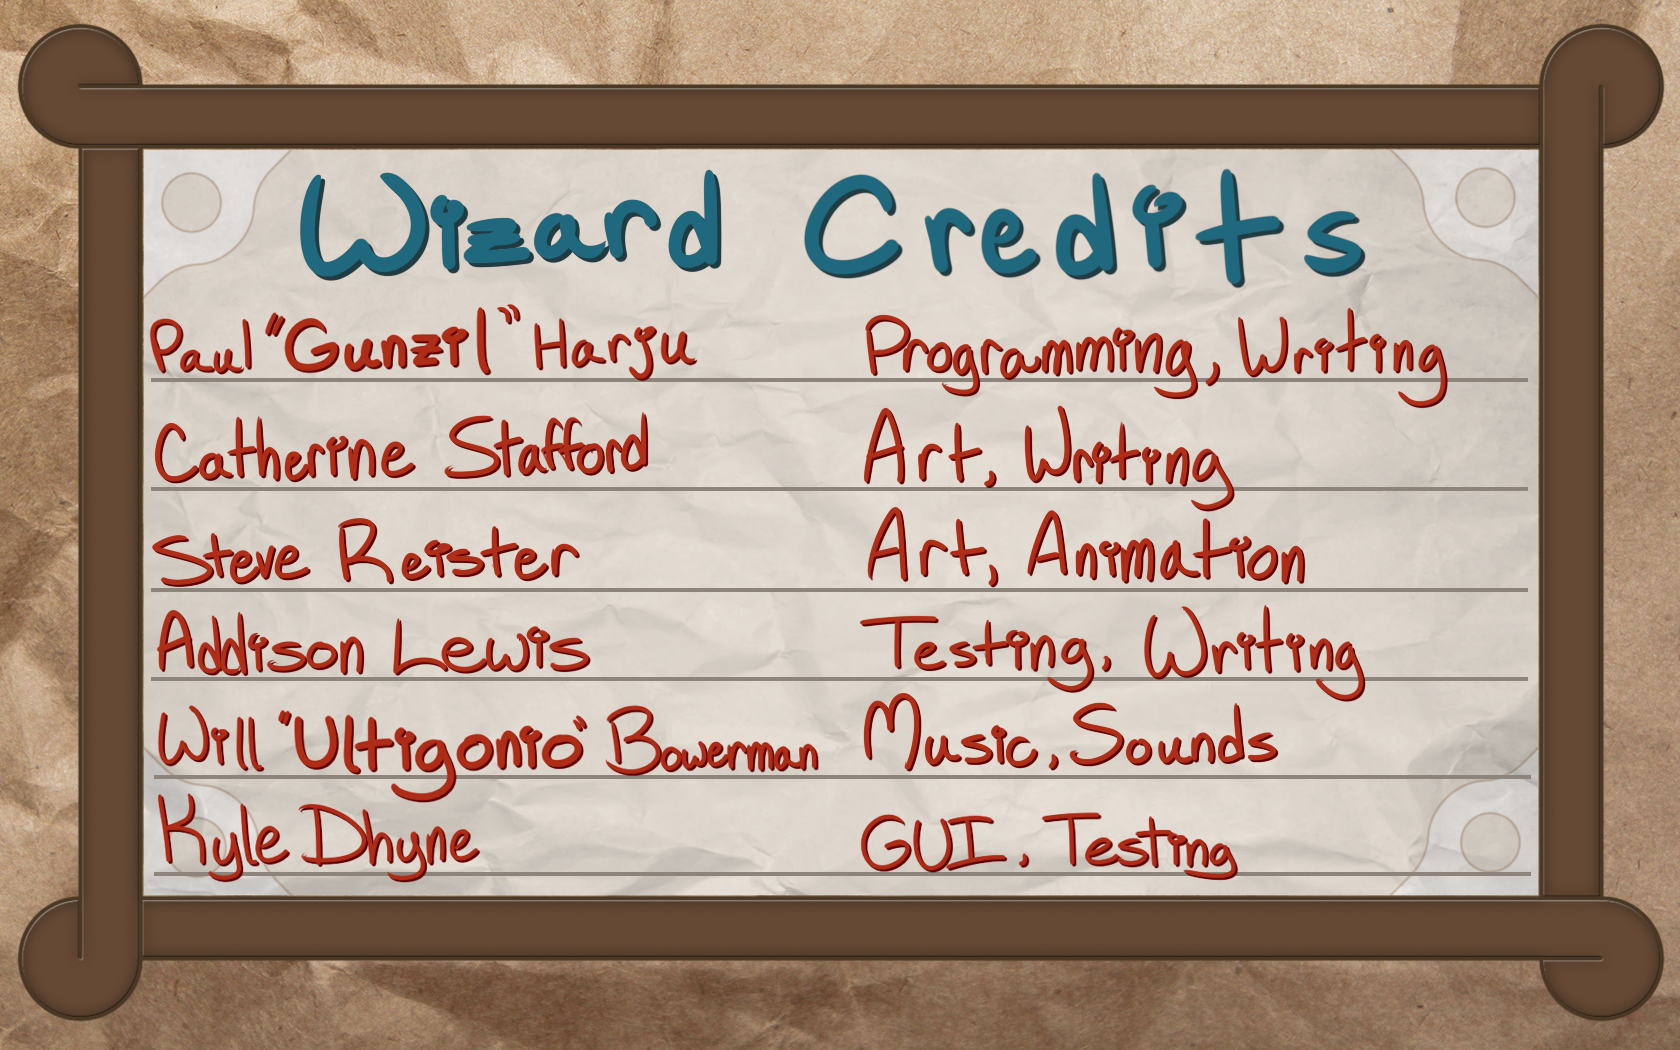 Wizard Credits
Paul "Gunzil" Harju Programming, Writing
Catherine Stafford Art, Writing
Steve Reister Art, Animation
Addison Lewis Testing, Writing
Will "Ultigonio" Bowerman Music, Sounds
Kyle Dhyne GUI, Testing